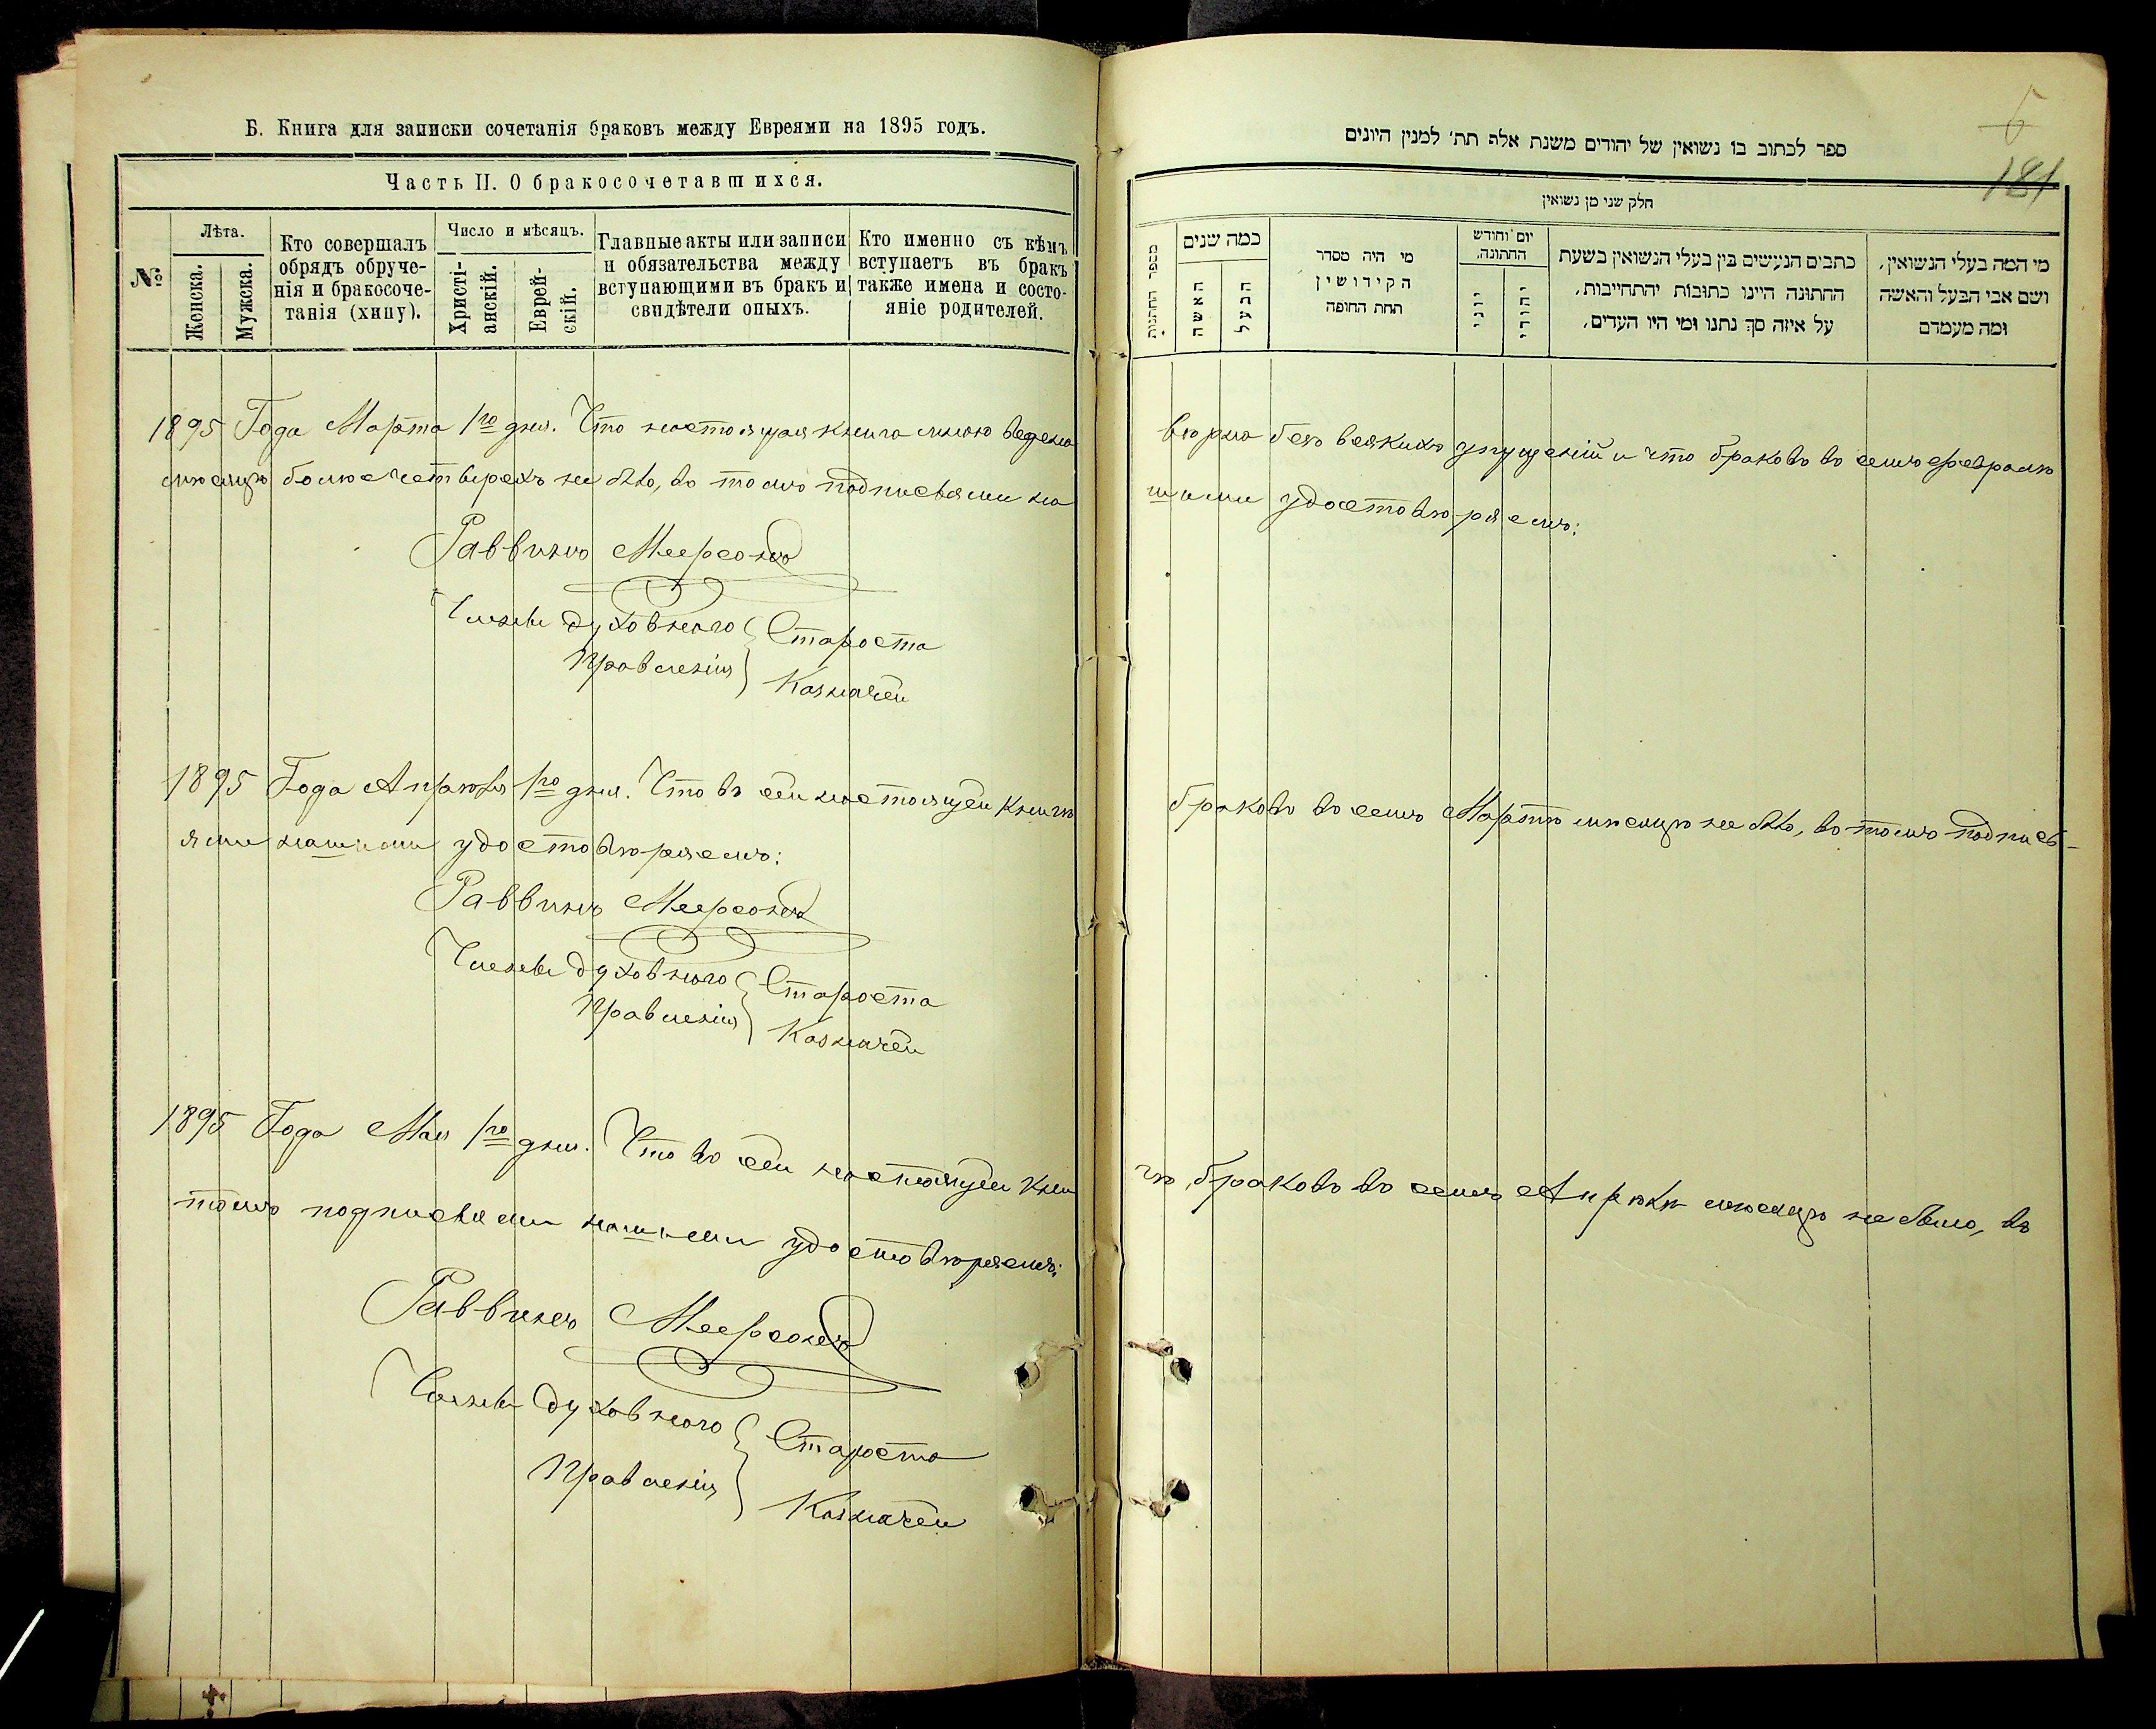 Б. Книга для записки сочетанія браковъ между Евреями на 1895 годъ.
Часть II. О бракосочетавшихся.
№
Лѣта.
Женска.
Мужска.
Кто совершалъ
обрядъ обруче-
нія и бракосоче-
танія (хипу).
Число и мѣсяцъ.
Христі-
анскій.
Еврей-
скій.
Главные акты или записи
и обязательства между
вступающими въ бракъ и
свидѣтели оныхъ.
Кто именно съ кѣмъ
вступаетъ въ бракъ
также имена и состо-
яніе родителей.
1895 Года Марта 1го дня. Что настоящая книга мною ведена
мѣсяцѣ болѣе четырехъ не было, въ томъ подписями на
Раввинъ Меерсонъ
Члены духовнаго
Правленія
Староста
Казначей
1895 Года Апрѣля 1го дня. Что въ сей настоящей книгѣ
ями нашими удостовѣряемъ:
Раввинъ Меерсонъ
Члены духовнаго
Правленія
Староста
Казначей
1895 Года Мая 1го дня. Что въ сей настоящей кни
томъ подписями нашими удостовѣряемъ:
Раввинъ Меерсонъ
Члены духовнаго
Правленія
Староста
Казначей
6
181
ספר לכתוב בו נשואין של יהודים משנת אלף תת׳ למנין היונים
חלק שני מן נשואין
מספר החתנות
כמה שנים
האשה
הבעל
מי היה מסדר
הקידושין
תחת החופה
יום וחודש
החתונה.
יוני
יהודי
כתבים הנעשים בין בעלי הנשואין בשעת
החתונה היינו כתובות יהתחייבות,
על איזה סך נתנו ומי היו העדים,
מי המה בעלי הנשואין,
ושם אבי הבעל והאשה
ומה מעמדם
вѣрно безъ всякихъ упущеній и что браковъ въ семъ февралѣ
шими удостовѣряемъ:
браковъ въ семъ Мартѣ мѣсяцѣ не было, въ томъ подпись-
гѣ, браковъ въ семъ Апрѣлѣ мѣсяцѣ не было, въ